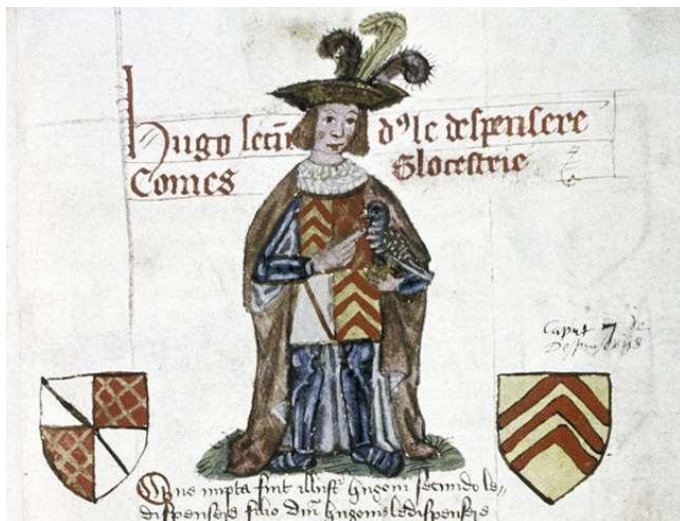 hugo secūdꝯ le despensere
Comes Glocestrie
Caput 7 de
Despenserijs
Que nupta fuit illustr̄ hugoni secundo le
dispensere filio dn̄i hugonis ledispensere